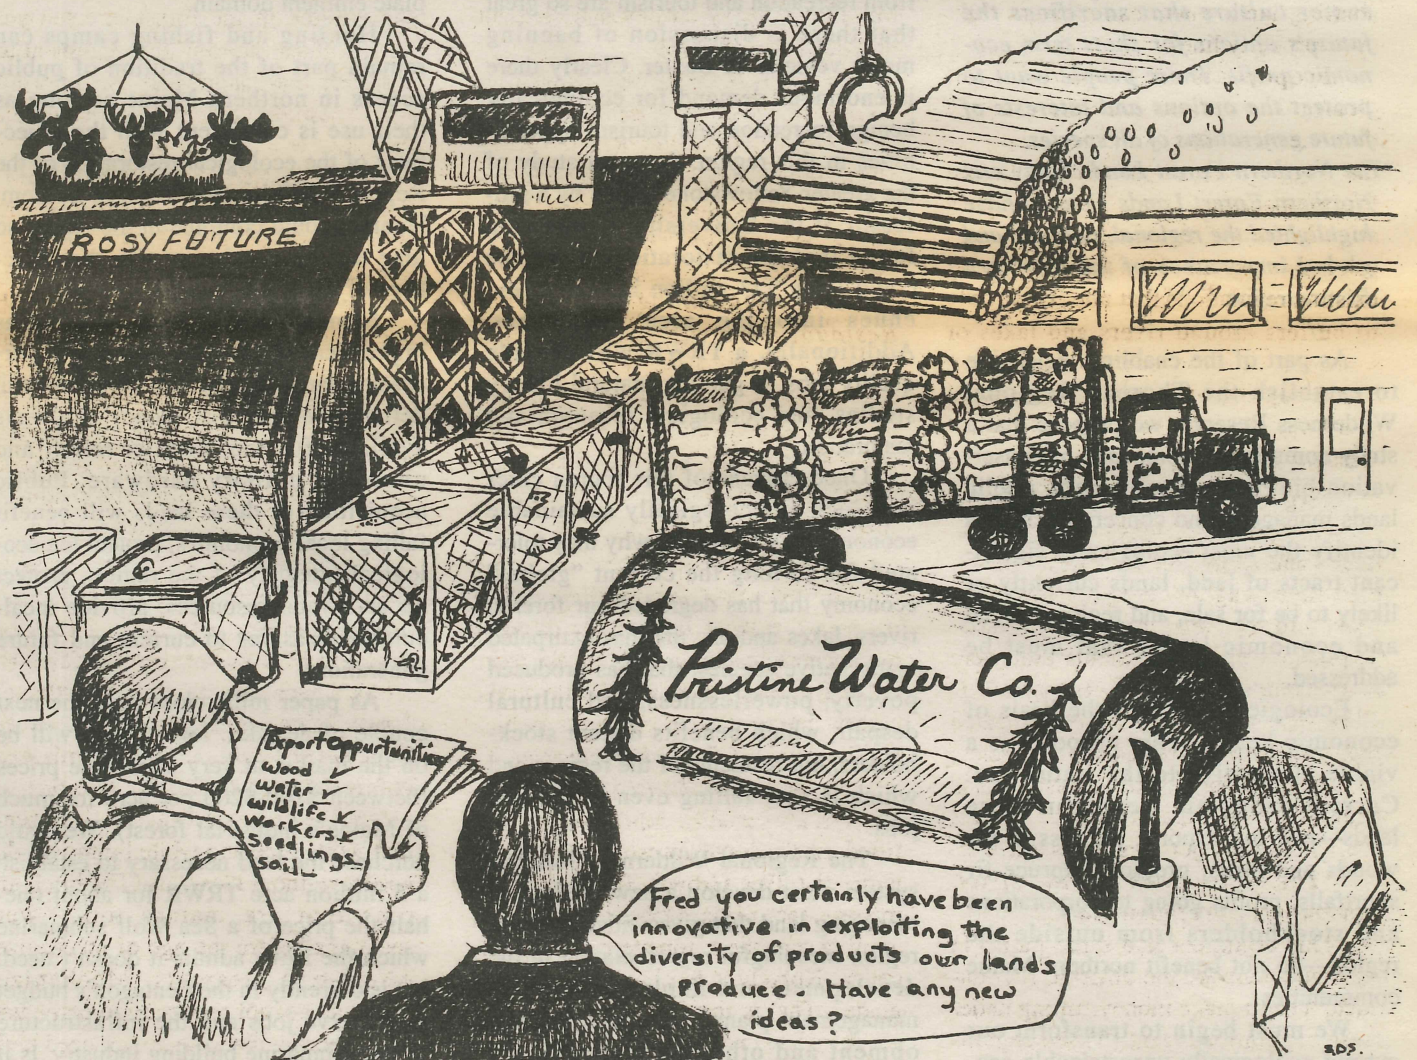 ROSY FUTURE
Pristine Water Co.
Export Oppurtunities
wood ✓
water ✓
wildlife ✓
workers
seedlings
soil
Fred you certainly have been
innovative in exploiting the
diversity of products our lands
produce. Have any new
ideas?
SDS